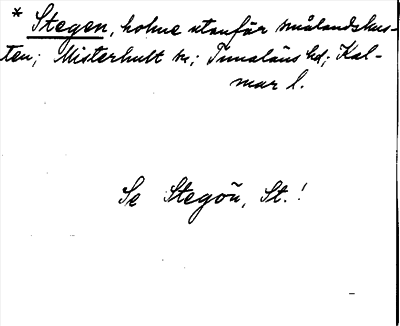 * Stegen, holme utanför smålandskus-
ten; Misterhult sn; Tunaläns hd; Kal-
mar l.
Se Stegön, St.!